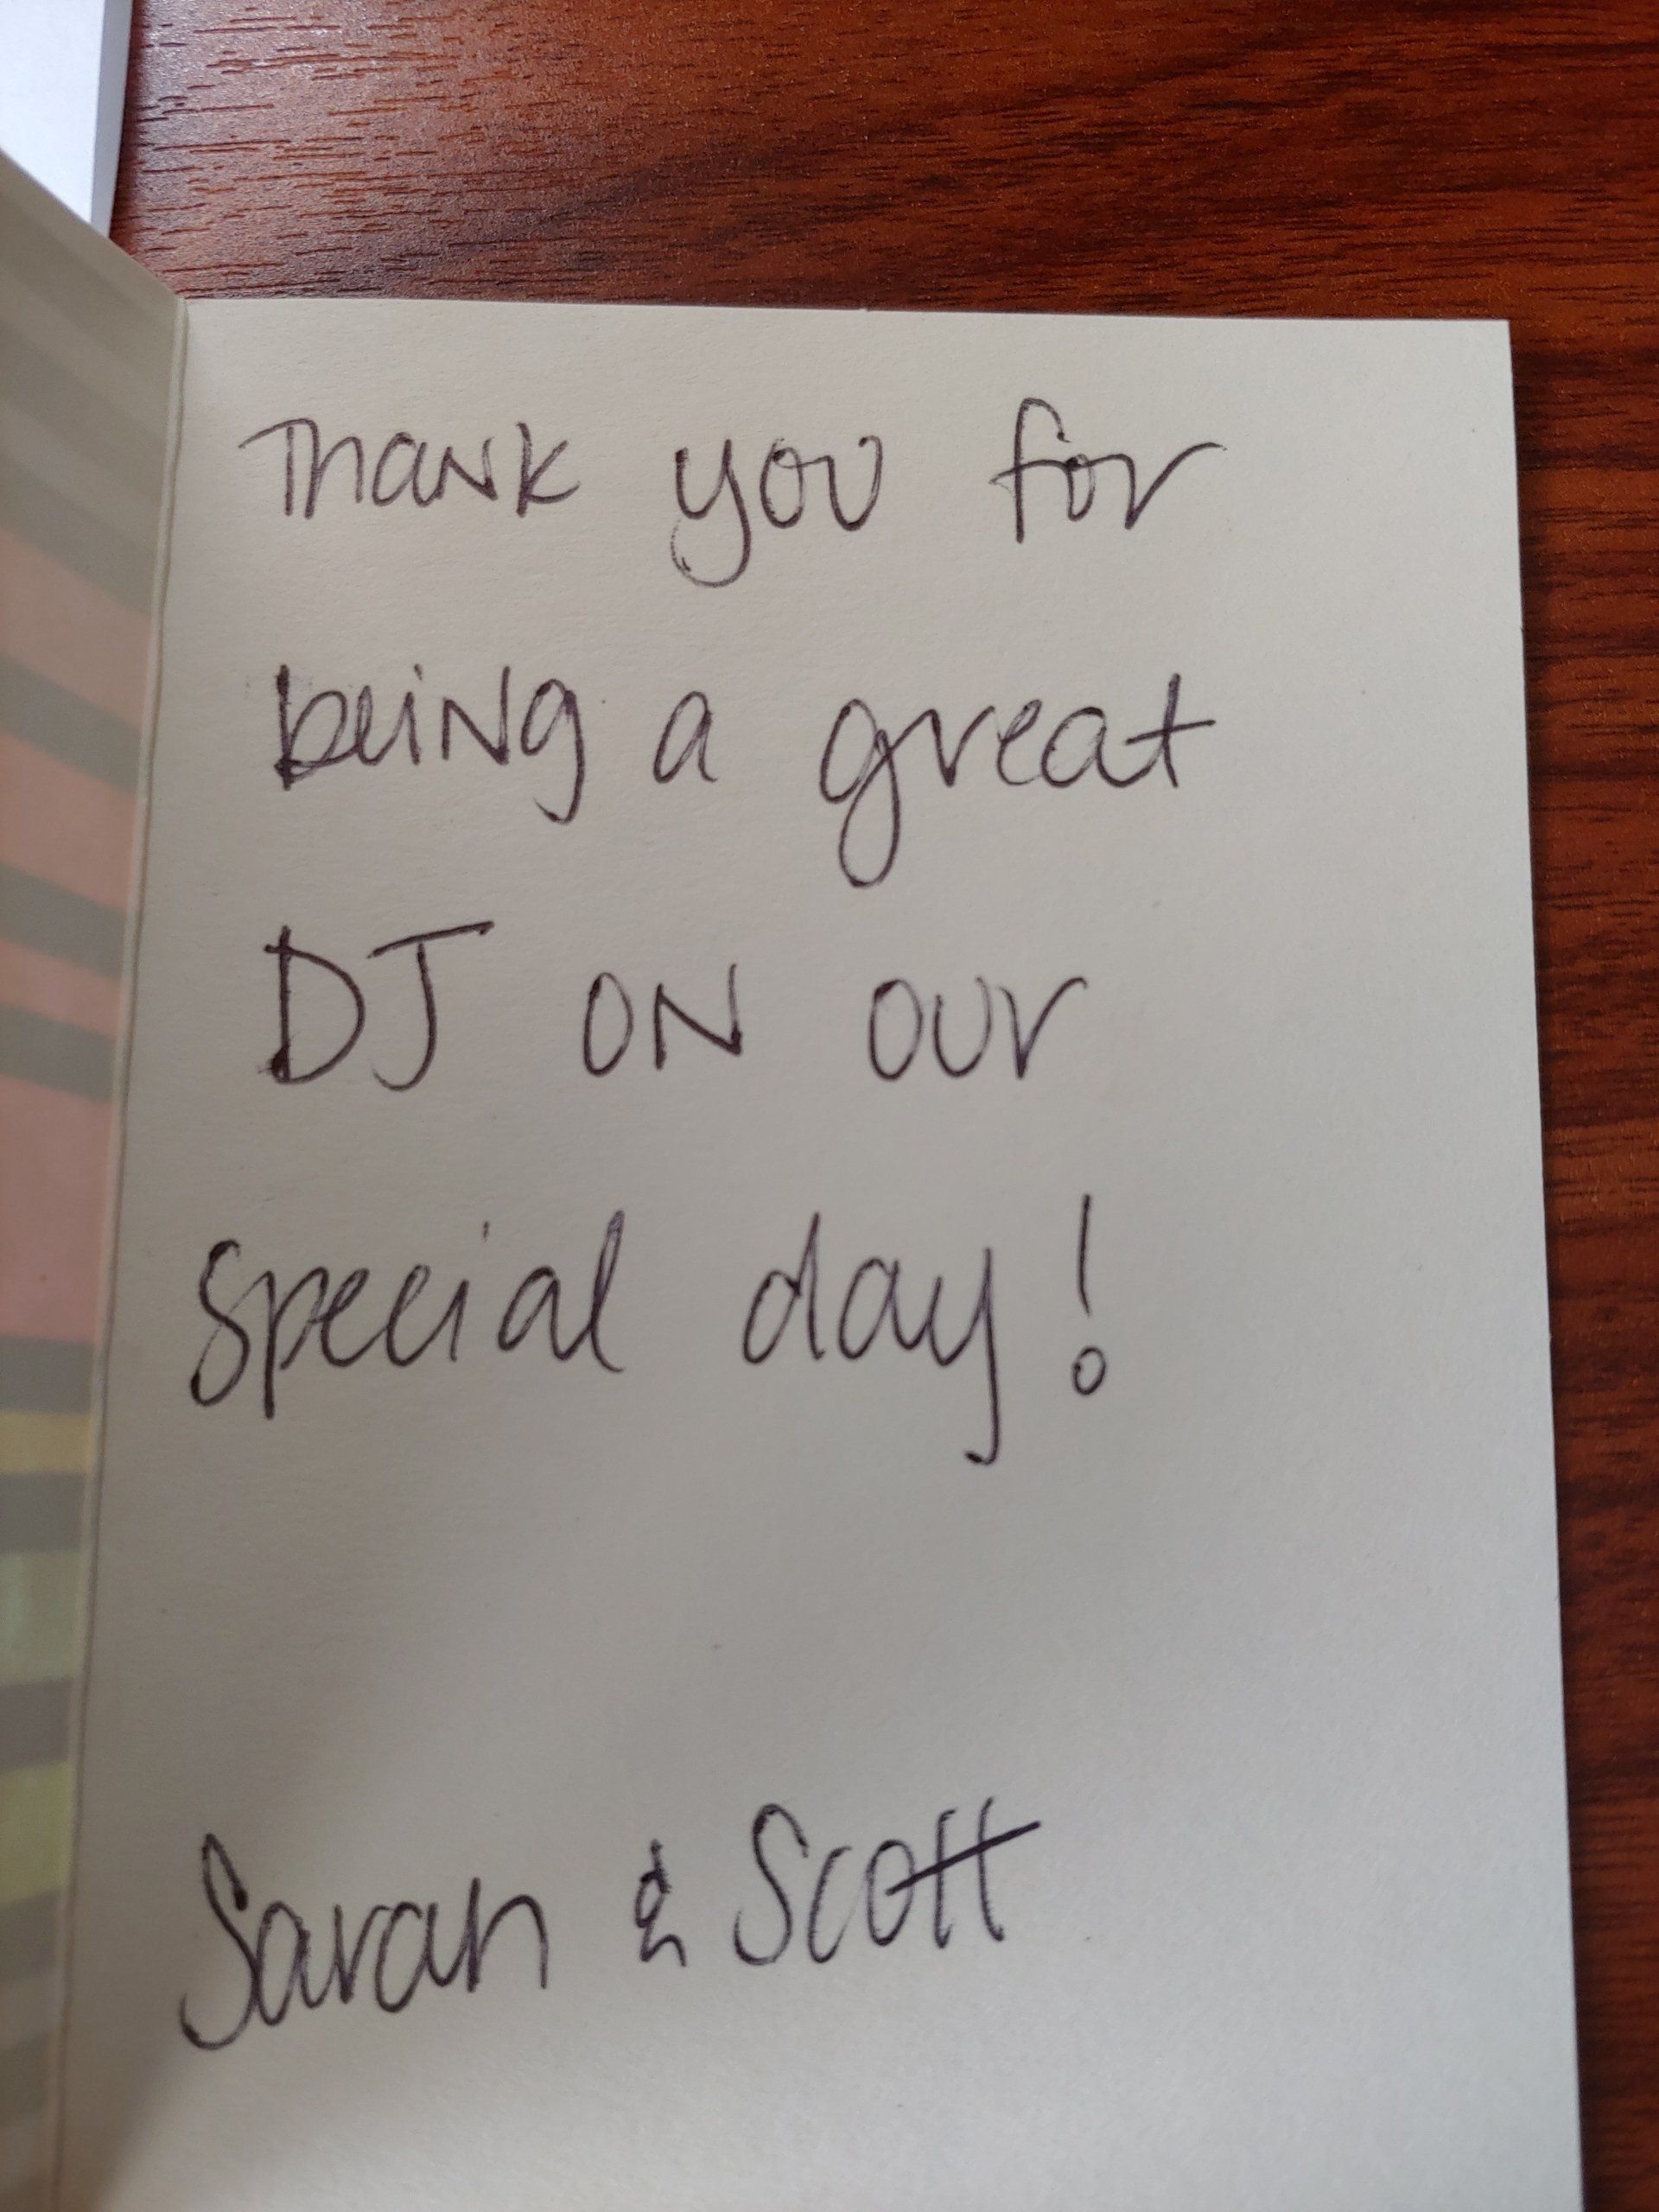 Thank you for
being a great
DJ on our
special day!
Sarah & Scott